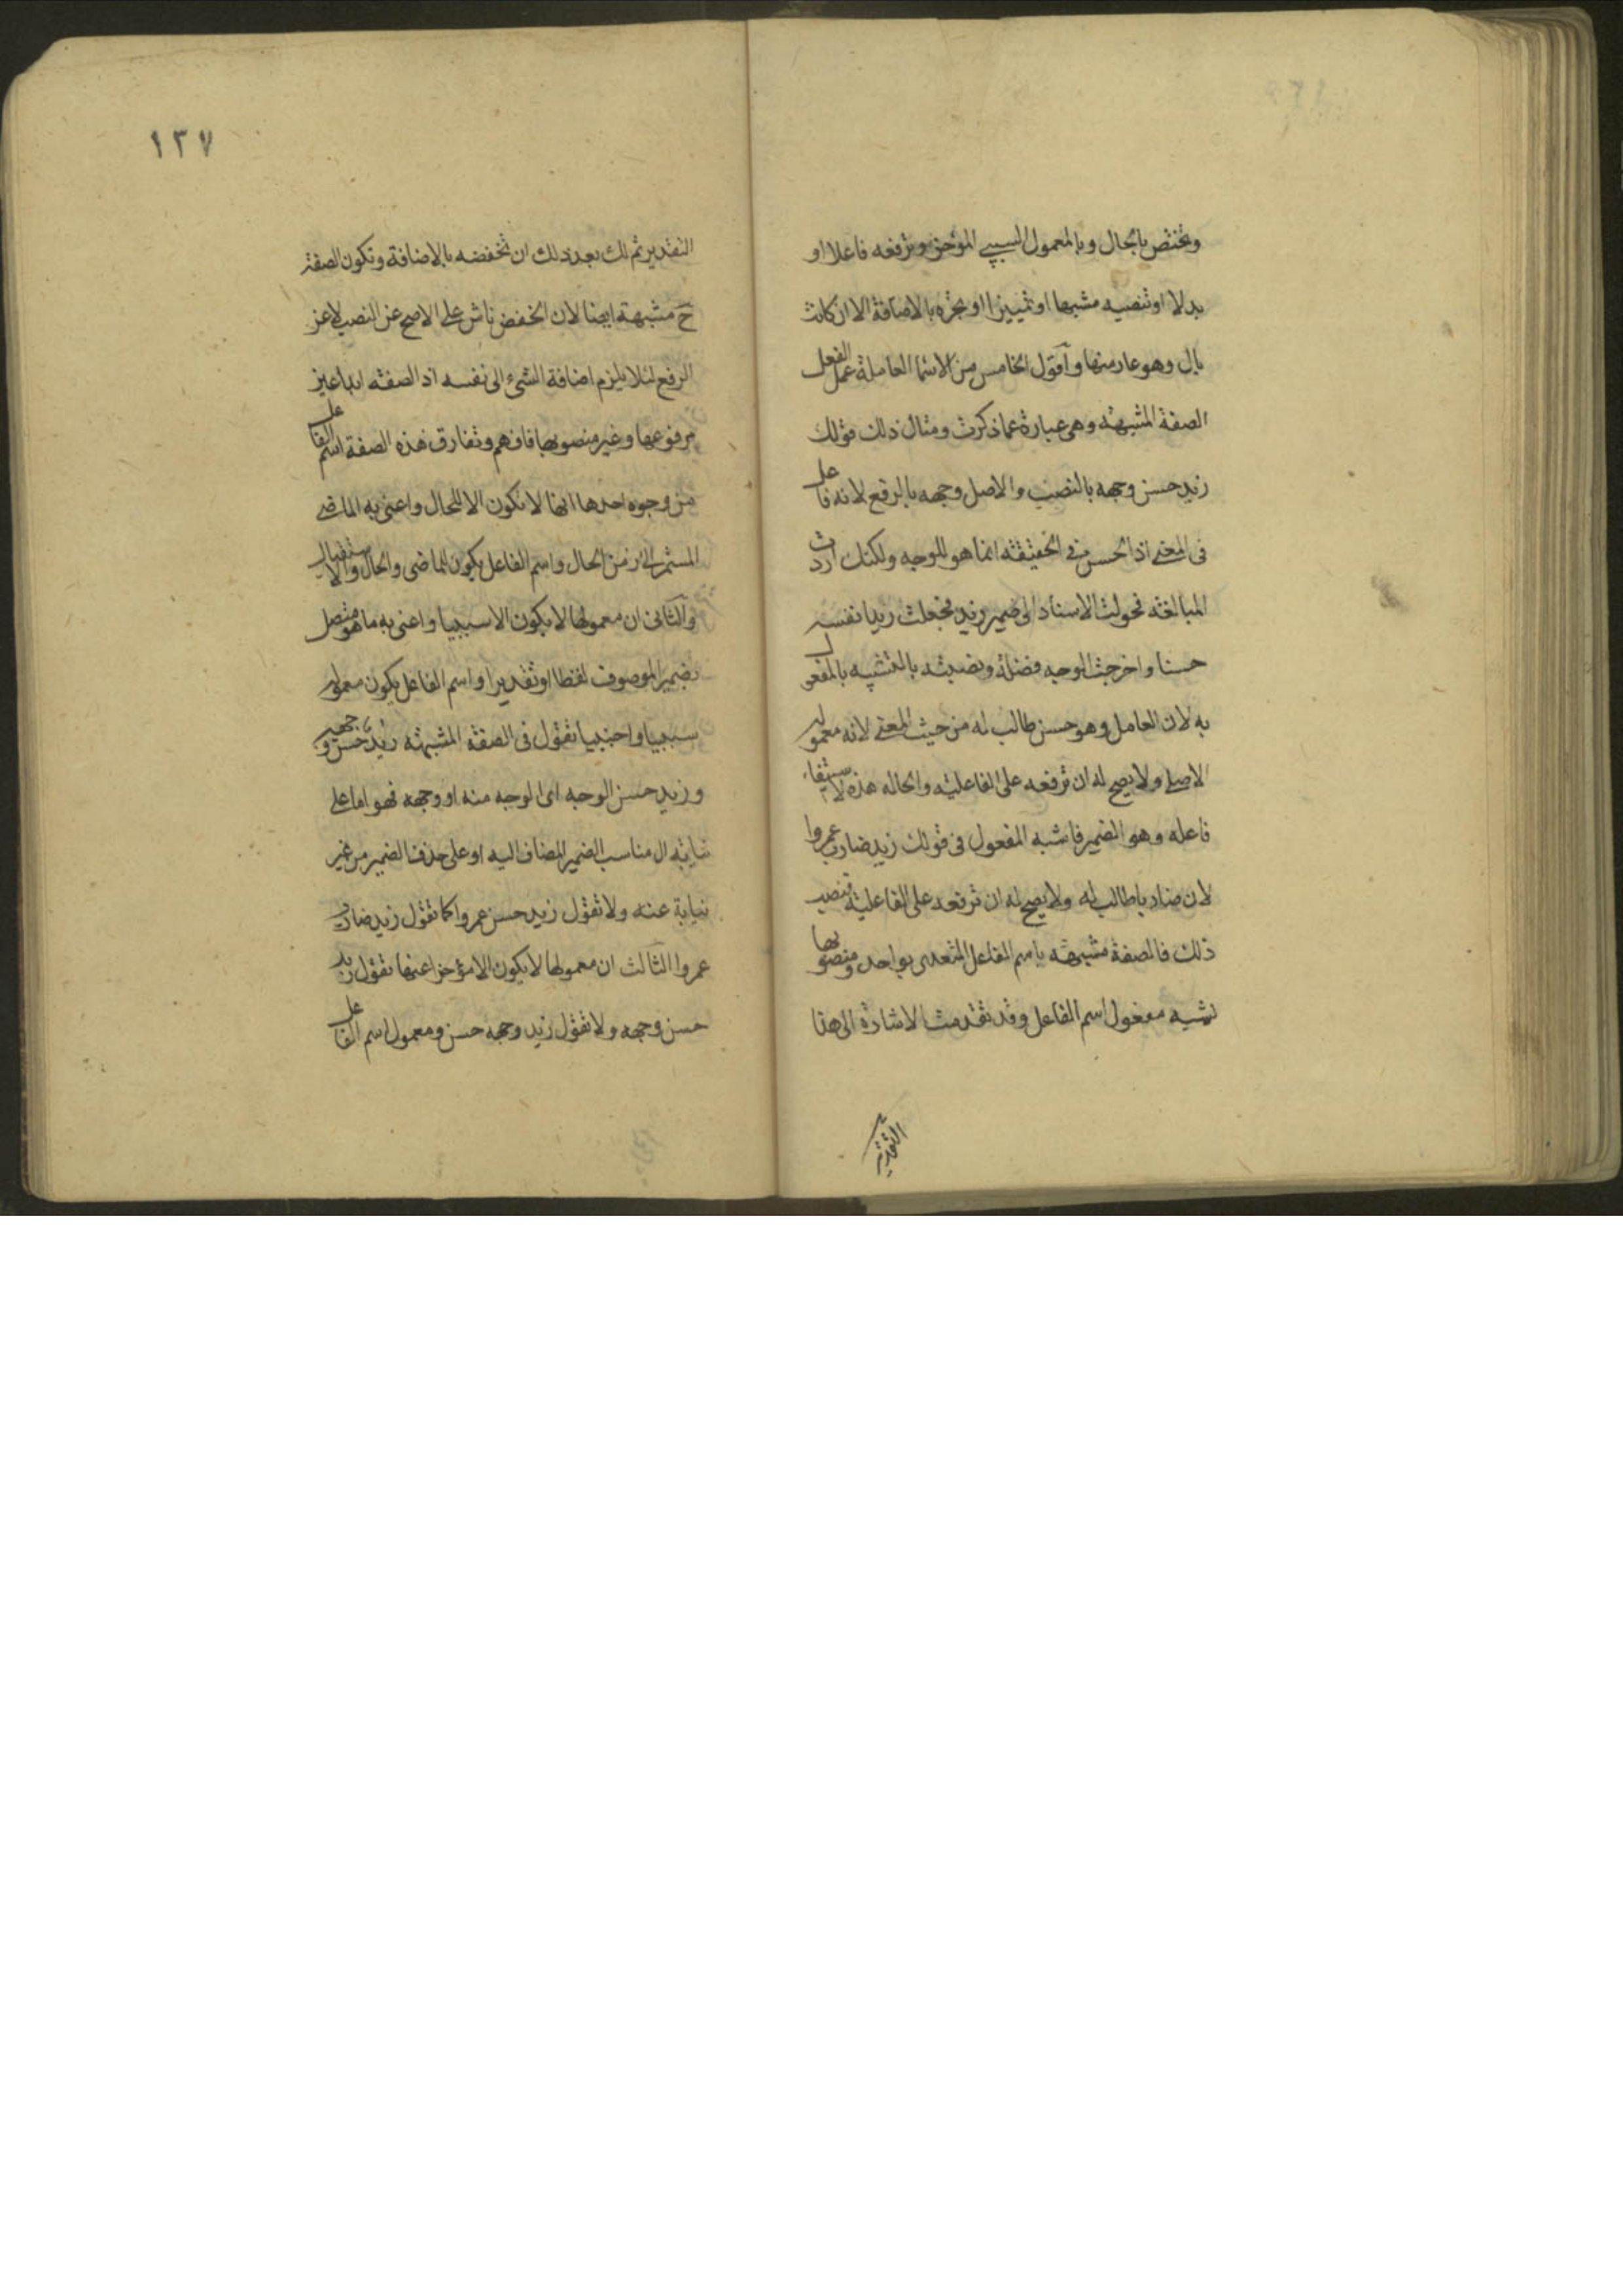 وتختص بالحال وبالمعمول السببي المؤخر وترفعه فاعلا او
بدلا او تنصبه مشبها او تمييزا او تجره بالاضافة الا ان كانت
بال وهو عار منها واقول الخامس من الاسما العاملة عمل الفعل
الصفة المشبهة وهى عبارة عما ذكرت ومثال ذلك قولك
زيد حسن وجهه بالنصب والاصل وجهه بالرفع لانه فاعل
فى المعنى اذ الحسن فى الحقيقة انما هو للوجه ولكنك اردت
المبالغة فحولت الاسناد الى ضمير زيد فجعلت زيدا نفسه
حسنا واخرجت الوجه فضلة ونصبته بالتشبيه بالمفعول
به لان العامل وهو حسن طالب له من حيث المعنى لانه معموله
الاصلى ولا يصح له ان ترفعه على الفاعلية والحاله هذه لاستيفاء
فاعله وهو الضمير فاشبه المفعول فى قولك زيد ضارب عمروا
لان ضاربا طالب له ولا يصح له ان ترفعه على الفاعلية فنصب
ذلك فالصفة مشبهة باسم الفاعل المتعدى لواحد ومنصوبها
تشبه مفعول اسم الفاعل وقد تقدمت الاشارة الى هذا
التقدير
١٣٧
التقدير ثم لك بعد ذلك ان تخفضه بالاضافة وتكون الصفة
ح مشبهة ايضا لان الخفض ناش على الاصح عن النصب لا عن
الرفع لئلا يلزم اضافة الشىء الى نفسه اذ الصفة ابدا عين
مرفوعها وغير منصوبها فافهم وتفارق هذه الصفة اسم الفاعل
من وجوه احدها انها لا تكون الا للحال واعنى به الماضى
المستمر الى زمن الحال واسم الفاعل يكون للماضى والحال والاستقبال
والثانى ان معمولها لا يكون الا سببيا واعنى به ما هو متصل
بضمير الموصوف لفظا او تقديرا واسم الفاعل يكون معموله
سببيا واجنبيا تقول فى الصفة المشبهة زيد حسن وجهه
وزيد حسن الوجه اى الوجه منه او وجهه فهو اما على
نيابة ال مناسب الضمير المضاف اليه او على حذف الضمير من غير
نيابة عنه ولا تقول زيد حسن عمروا كما تقول زيد ضارب
عمروا الثالث ان معمولها لا يكون الا مؤخرا عنها تقول زيد
حسن وجهه ولا تقول زيد وجهه حسن ومعمول اسم الفاعل